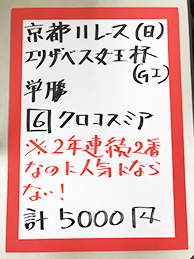 京都11レース(日)
エリザベス女王杯
(GI)
単勝
6 クロコスミア
※2年連続2番
なのに人気になら
ない!
計 5000円